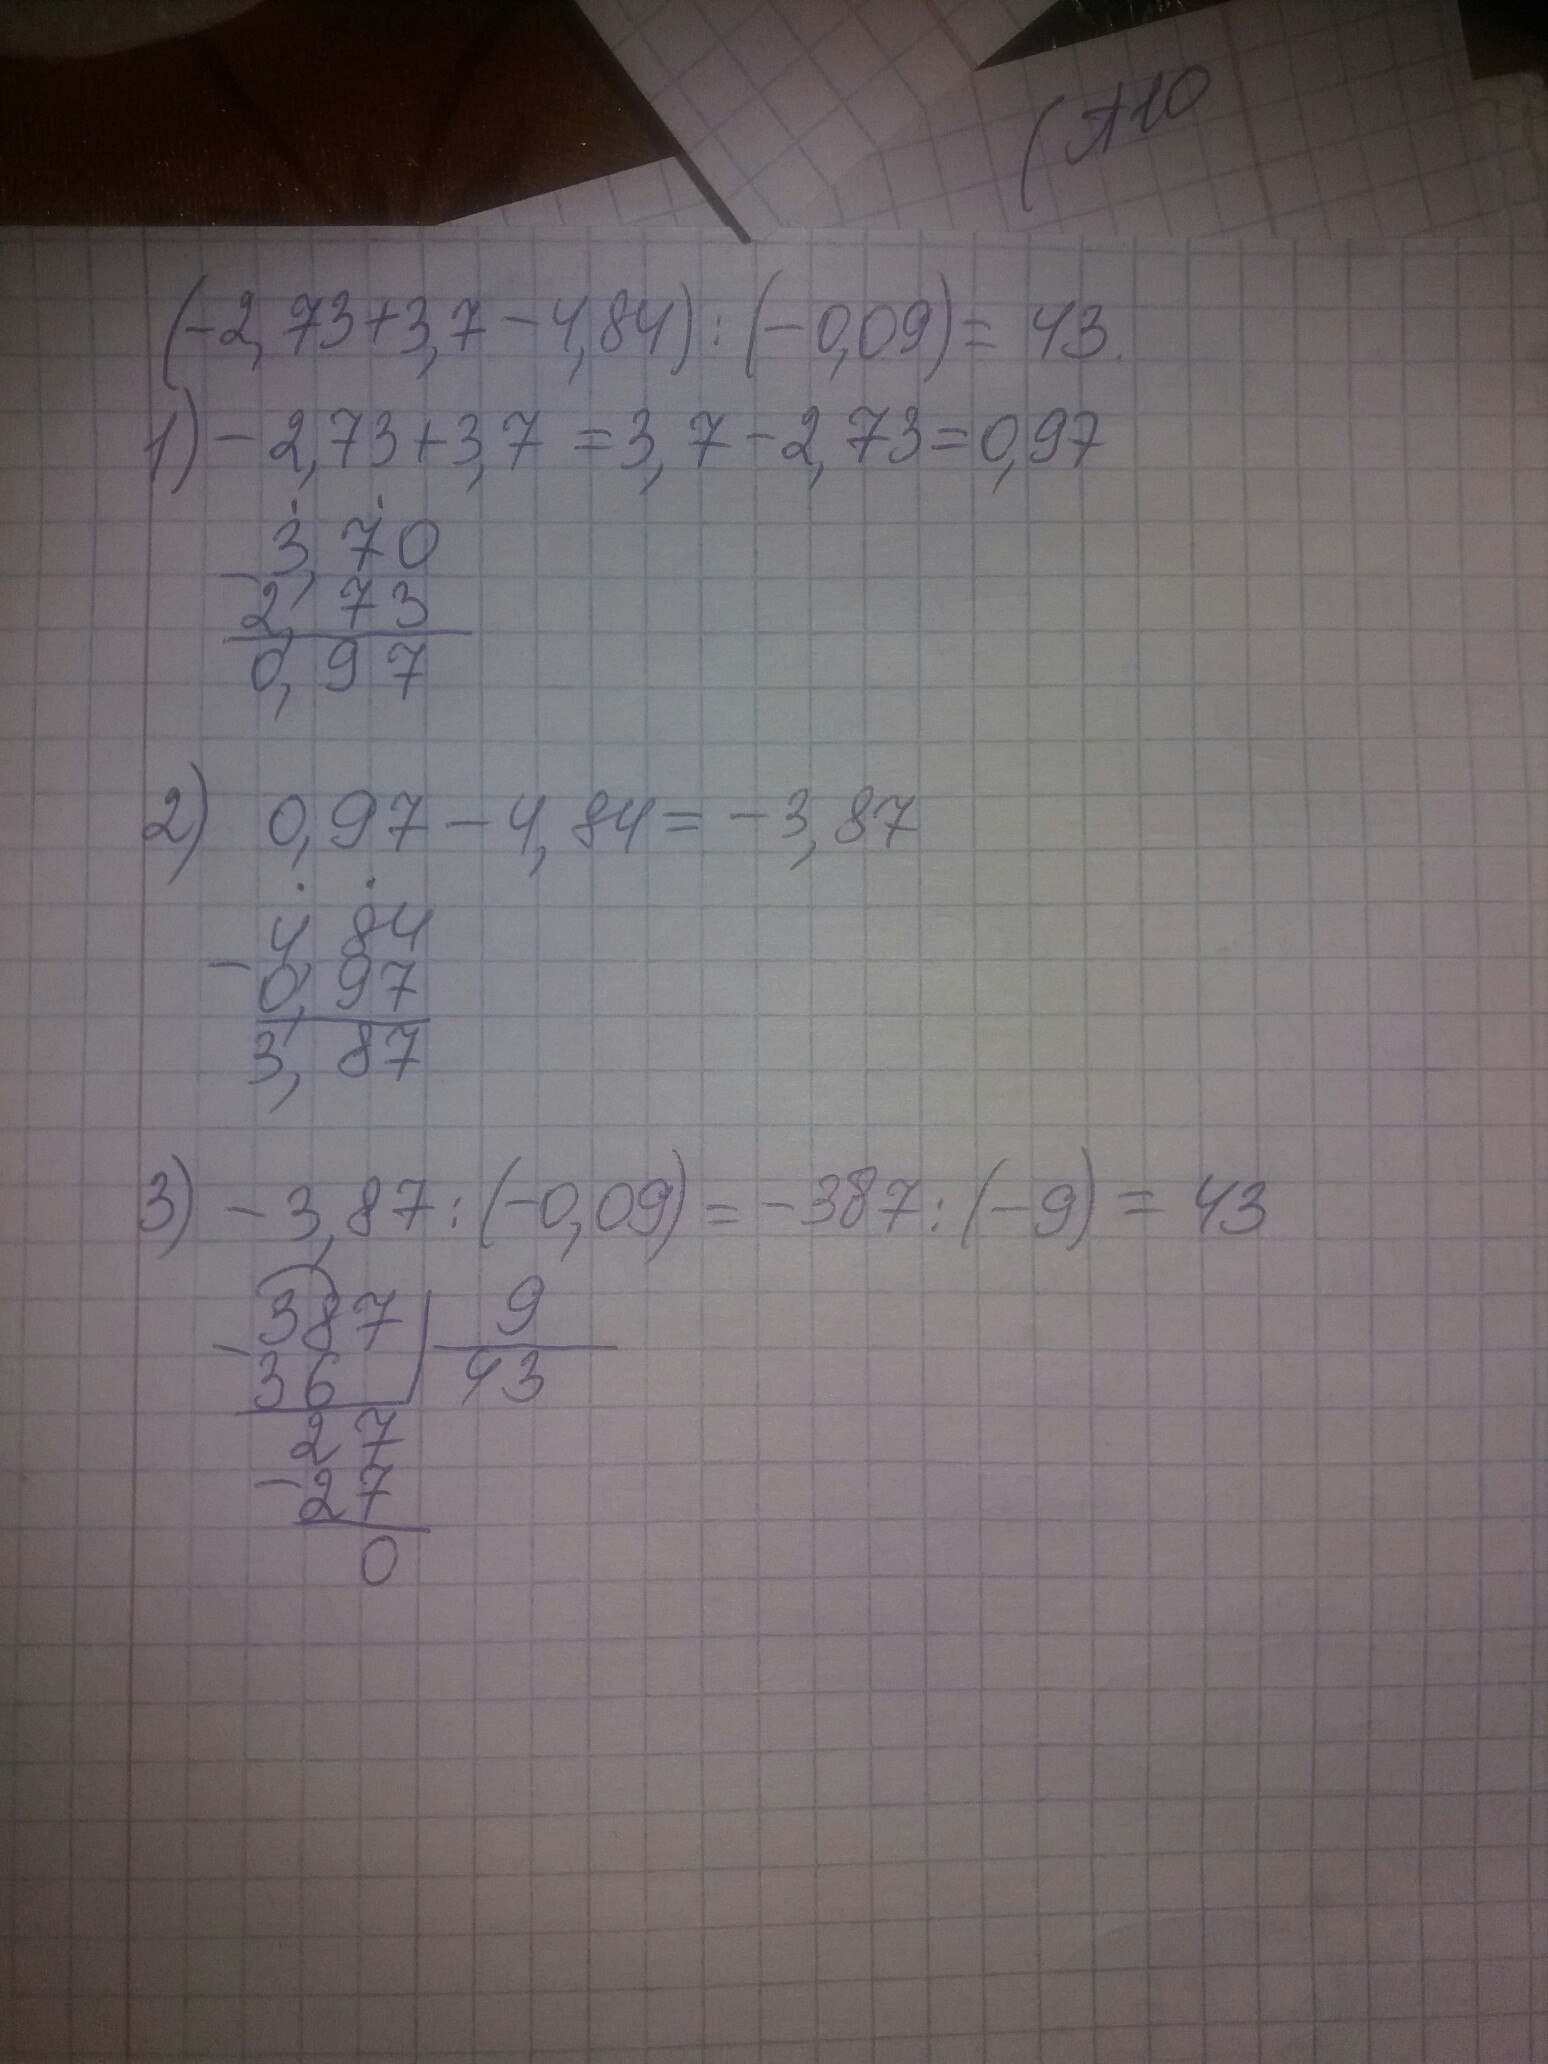 (-2,73+3,7-4,84):(-0,09)=43.
1) -2,73+3,7=3,7-2,73=0,97
3,70
- 2,73
0,97
2) 0,97-4,84=-3,87
4,84
- 0,97
3,87
3) -3,87:(-0,09)=-387:(-9)=43
387 9
- 36 43
27
- 27
0